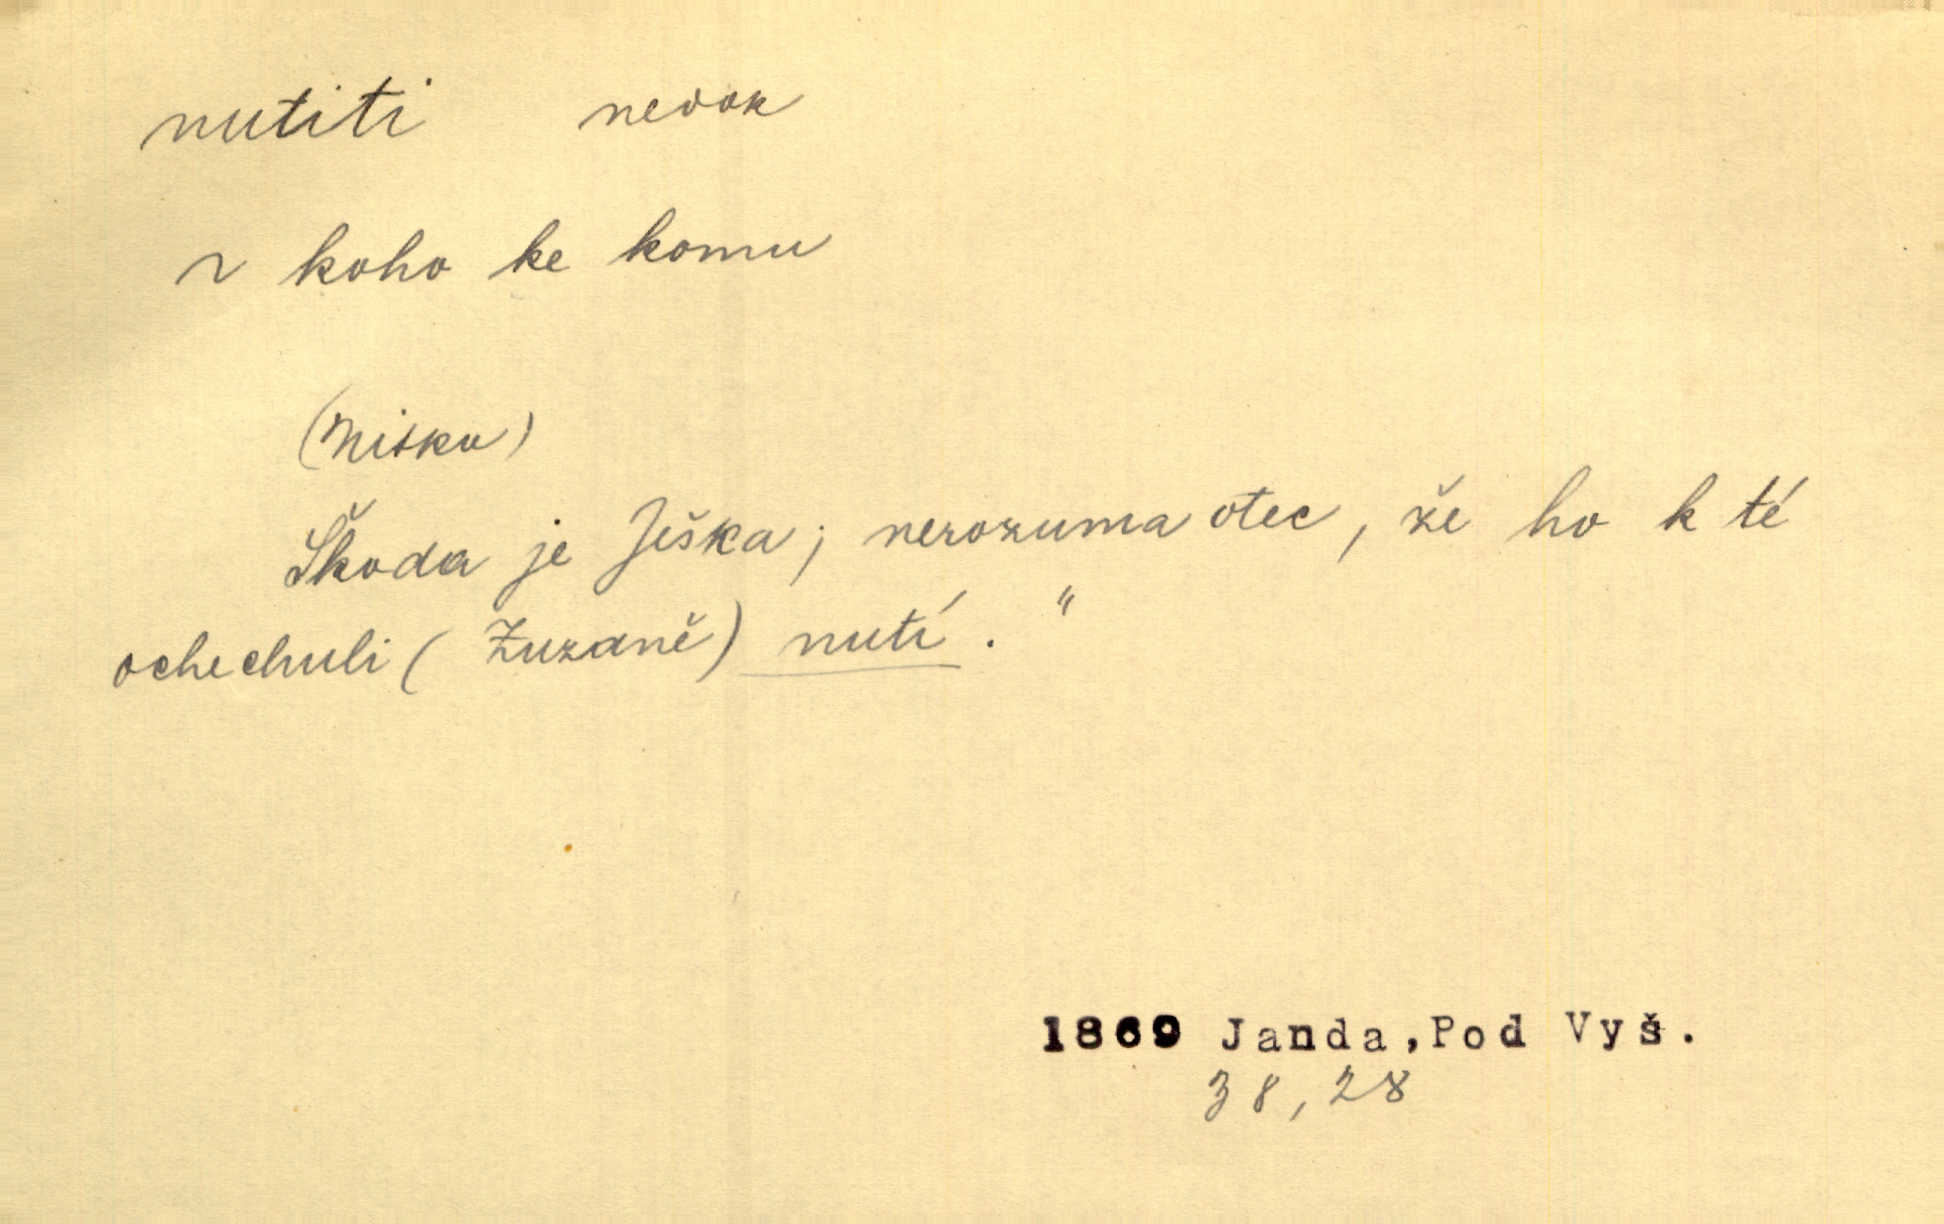 nutiti nedok
~ koho ke komu
(Miško)
Škoda je Ješka; nerozuma otec, že ho k té
ochechuli (Zuzaně) nutí."
1869 Janda, Pod Vyš.
38, 28